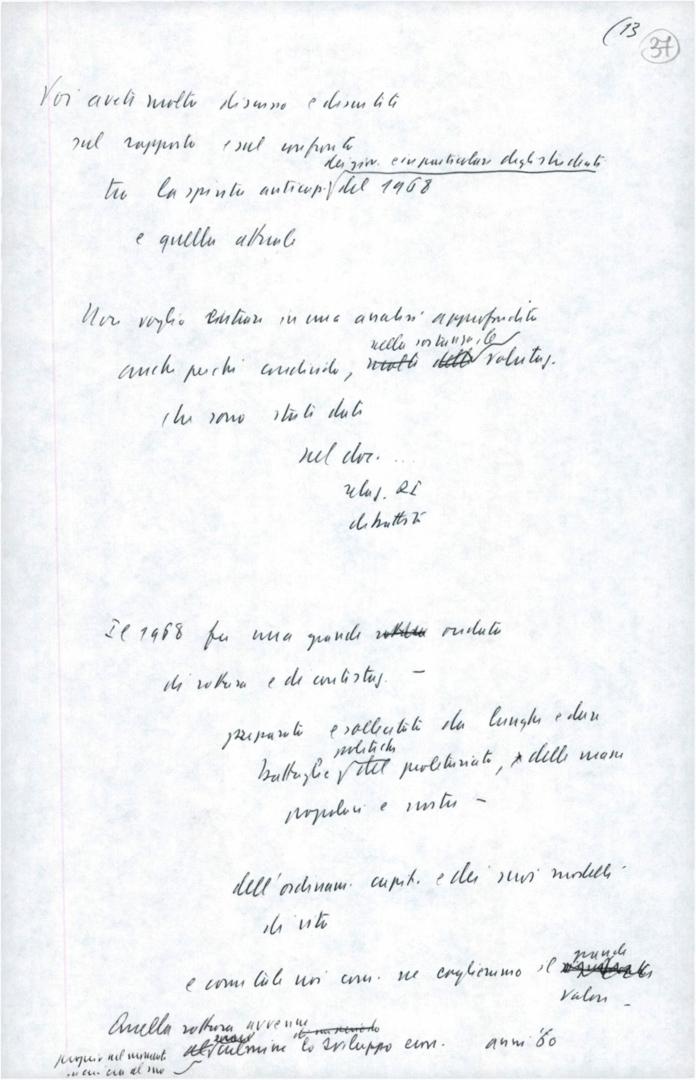 (13
37
Voi avete molto discusso e discutete
sul rapporto e sul confronto
dei giov. e in particolare degli studenti
tra la spinta anticap. del 1968
e quella attuale
Non voglio entrare in una analisi approfondita
nella sostanza le
anche perché condivido, molte delle valutaz.
che sono state date
nel doc. ...
relaz. RI
dibattito
Il 1968 fu una grande ondata
di rottura e di contestaz. —
preparata e sollecitata da lunghe e dure
politiche
battaglie del proletariato, delle masse
popolari e nostre —
dell'ordinam. capit. e dei suoi modelli
di vita
grande
e come tale noi com. ne cogliemmo il
valore —
Quella rottura avvenne
culmine lo sviluppo econ. anni '60
proprio nel momento
in cui era al suo